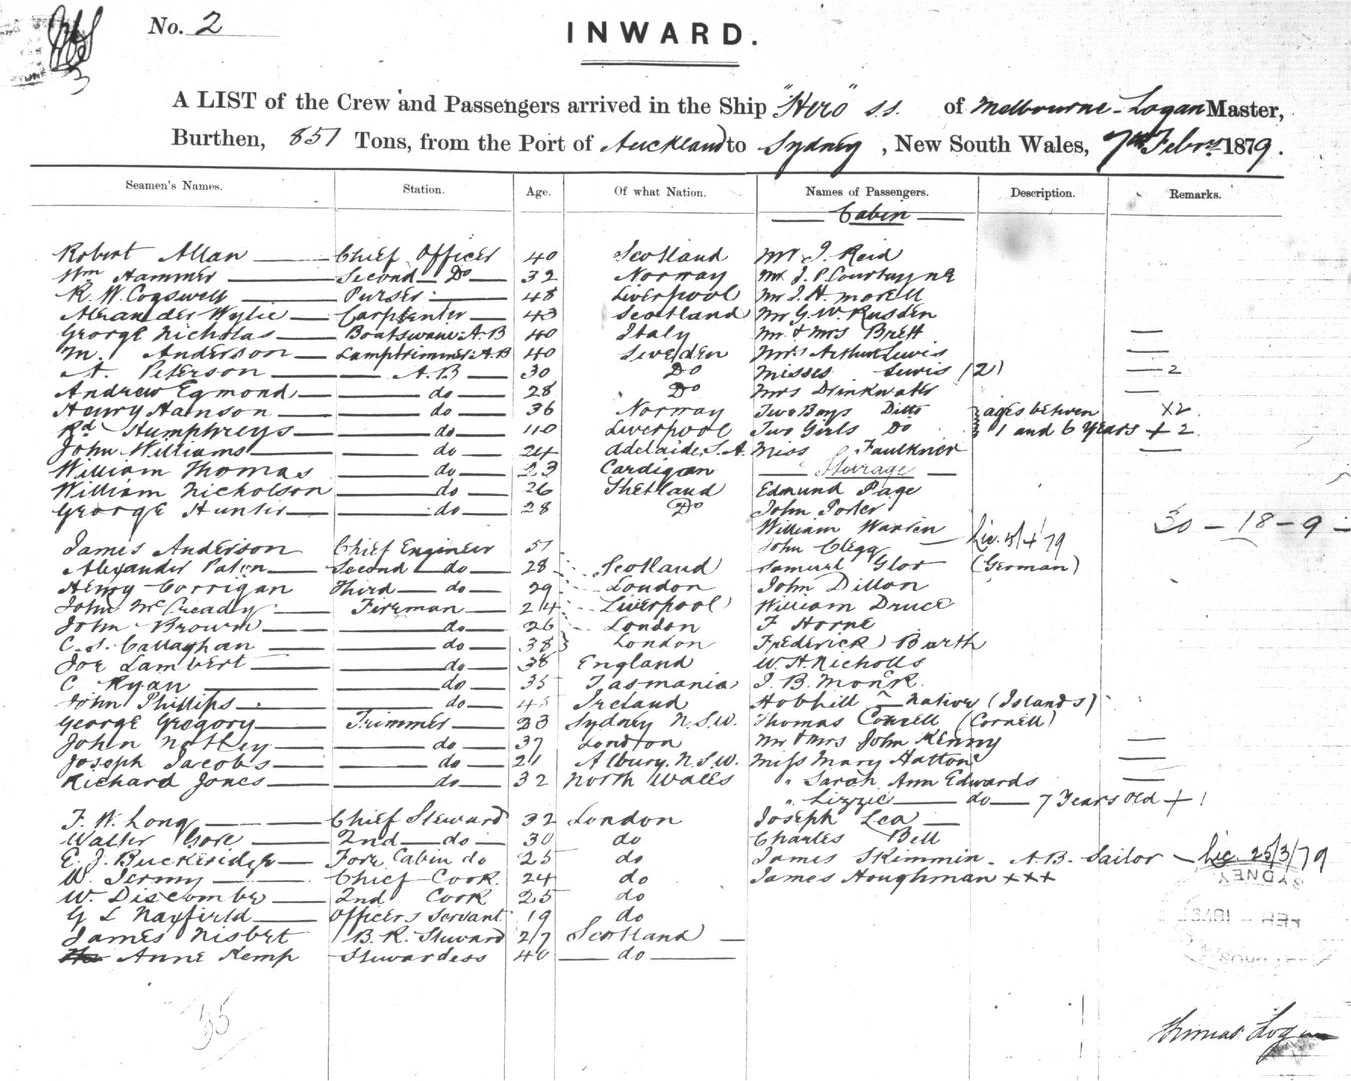 No. 2
INWARD.
A LIST of the Crew and Passengers arrived in the Ship "Hero" s.s. of Melbourne - Logan Master,
Burthen, 851 Tons, from the Port of Auckland to Sydney, New South Wales, 7th Febry. 1879.
Seamen's Names. Station. Age. Of what Nation. Names of Passengers. Description. Remarks.
Cabin
Robert Allan Chief Officer 40 Scotland Mr J. Reid
Wm Hammer Second Do 32 Norway Mr J. P. Courtayne
R. W. Cogswell Purser 48 Liverpool Mr J. H. Morell
Alexander Wylie Carpenter 43 Scotland Mr G. W. Rusden
George Nicholas Boatswain & A.B 40 Italy Mr & Mrs Brett
M. Anderson Lamptrimmer & A.B 40 Sweden Mrs Arthur Lewis
A. Peterson A.B 30 Do Misses Lewis (2) 2
Andrew Egmond do 28 Do Mrs Drinkwater
Henry Hanson do 36 Norway Two Boys Ditto } ages between X2
Rd Humphreys do 40 Liverpool Two Girls Do } 1 and 6 Years + 2
John Williams do 24 Adelaide, S.A. Miss Faulkner
William Thomas do 23 Cardigan Steerage
William Nicholson do 26 Shetland Edmund Page
George Hunter do 28 Do John Porter
William Warren 30 - 18 - 9 -
James Anderson Chief Engineer 51 John Clegg Lic. 5/4/79
Alexander Paton Second do 28 Scotland Samuel Glor (German)
Henry Corrigan Third do 29 London John Dillon
John McCready Fireman 24 Liverpool William Druce
John Brown do 26 London F Horne
C. J. Callaghan do 38 London Frederick Barth
Joe Lambert do 38 England W. H. Nicholls
C Ryan do 35 Tasmania J. B. Monk
John Phillips do 45 Ireland Hobhill - Native (Islands)
George Gregory Trimmer 23 Sydney N.S.W. Thomas Connell (Cornell)
John Notley do 37 London Mr & Mrs John Kenny
Joseph Jacobs do 21 Albury. N.S.W. Miss Mary Hatton
Richard Jones do 32 North Wales " Sarah Ann Edwards
" Lizzie do 7 Years old + 1
F. W. Long Chief Steward 32 London Joseph Lea
Walter Gore 2nd do 30 do Charles Bell
E. J. Buckeridge Fore Cabin do 25 do James Skimmin - A.B. Sailor - Lic. 25/3/79
W. Jermy Chief Cook 24 do James Houghman xxx
W. Discombe 2nd Cook 25 do
G L Nayfield Officers Servant 19 do
James Nisbet B. R. Steward 27 Scotland
Anne Kemp Stewardess 40 do
35
Thomas Logan
SYDNEY